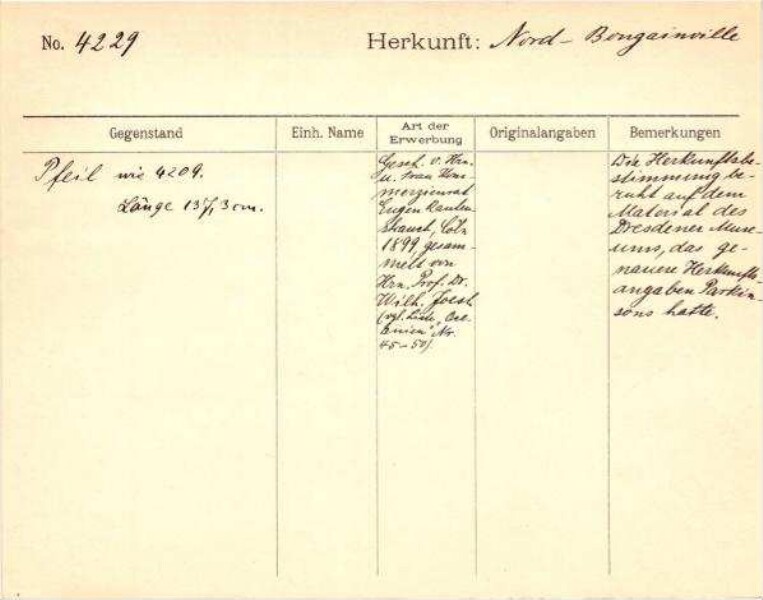 No. 4229
Herkunft: Nord- Bougainville
Gegenstand
Einh. Name
Art der
Erwerbung
Originalangaben
Bemerkungen
Pfeil wie 4209.
Länge 137,3 cm.
Gesch. v. Hrn.
u. Frau Kom-
merzienrat
Eugen Rauten-
strauch, Cöln
1899, gesam-
melt von
Hrn. Prof. Dr.
Wilh. Joest
(vgl. Liste „Oce-
anien" Nr.
45-50)
Die Herkunftsbe-
stimmung be-
ruht auf dem
Material des
Dresdener Muse-
ums, das ge-
nauere Herkunfts-
angaben Parkin-
sons hatte.